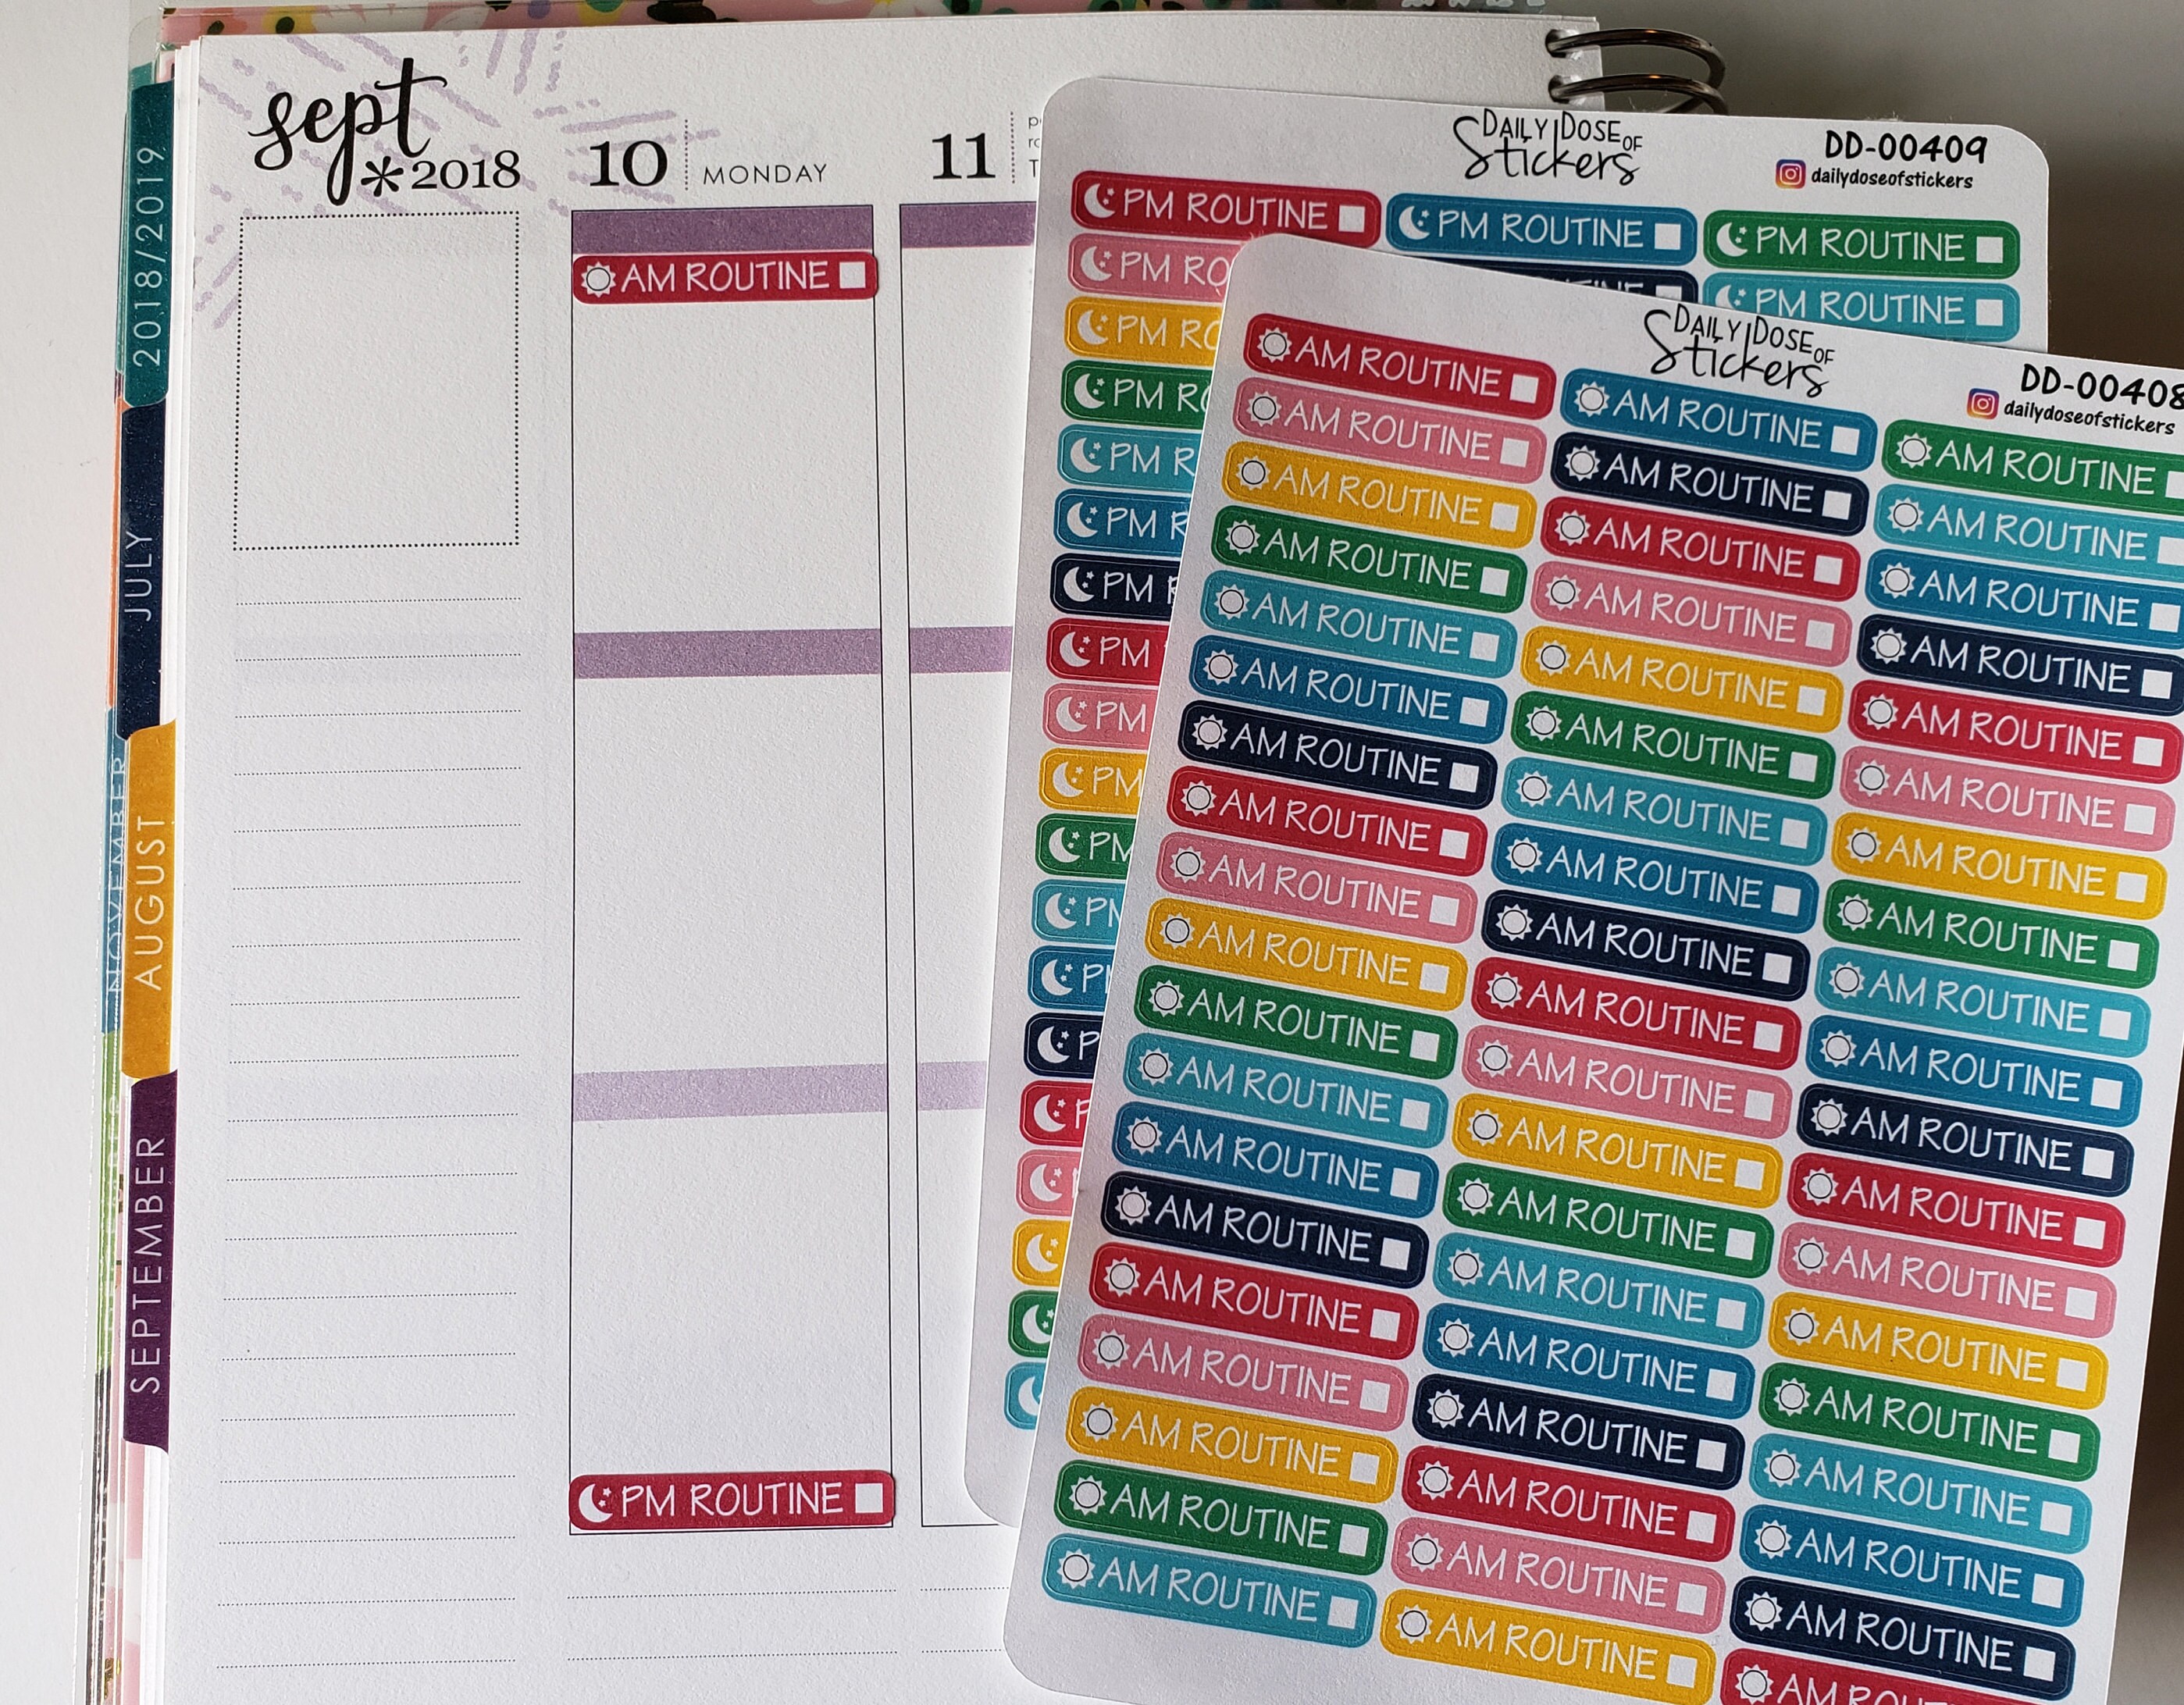 sept
*2018
10 MONDAY
11
2018/2019
JULY
AUGUST
NOVEMBER
SEPTEMBER
AM ROUTINE
PM ROUTINE
DAILY DOSE OF
Stickers
DD-00409
dailydoseofstickers
PM ROUTINE PM ROUTINE PM ROUTINE
PM PM ROUTINE
PM
PM
PM
PM
PM
PM
PM
PM
PM
DAILY DOSE OF
Stickers
DD-00408
dailydoseofstickers
AM ROUTINE AM ROUTINE AM ROUTINE
AM ROUTINE AM ROUTINE AM ROUTINE
AM ROUTINE AM ROUTINE AM ROUTINE
AM ROUTINE AM ROUTINE AM ROUTINE
AM ROUTINE AM ROUTINE AM ROUTINE
AM ROUTINE AM ROUTINE AM ROUTINE
AM ROUTINE AM ROUTINE AM ROUTINE
AM ROUTINE AM ROUTINE AM ROUTINE
AM ROUTINE AM ROUTINE AM ROUTINE
AM ROUTINE AM ROUTINE AM ROUTINE
AM ROUTINE AM ROUTINE AM ROUTINE
AM ROUTINE AM ROUTINE AM ROUTINE
AM ROUTINE AM ROUTINE AM ROUTINE
AM ROUTINE AM ROUTINE AM ROUTINE
AM ROUTINE AM ROUTINE AM ROUTINE
AM ROUTINE AM ROUTINE AM ROUTINE
AM ROUTINE AM ROUTINE AM ROUTINE
AM ROUTINE AM ROUTINE AM ROUTINE
AM ROUTINE AM ROUTINE AM